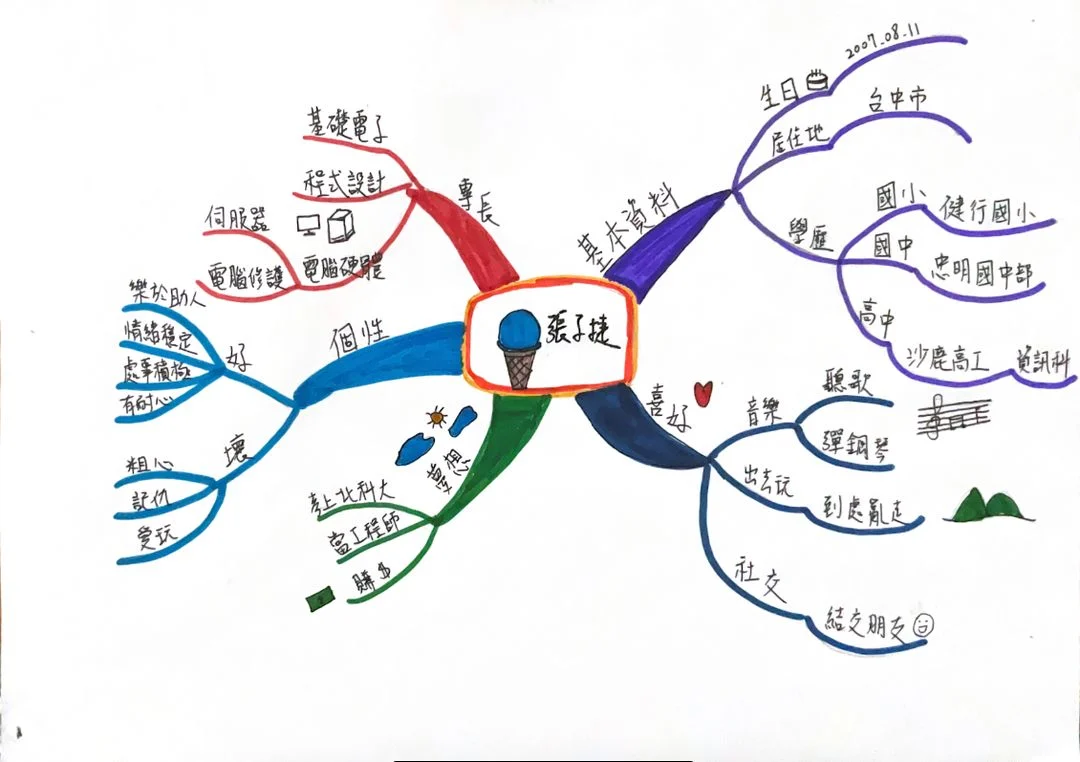 張子捷
基本資料
生日
2007.08.11
居住地
台中市
學歷
國小
健行國小
國中
忠明國中部
高中
沙鹿高工
資訊科
喜好
音樂
聽歌
彈鋼琴
出去玩
到處亂走
社交
結交朋友
夢想
考上北科大
當工程師
賺$
個性
好
樂於助人
情緒穩定
處事積極
有耐心
壞
粗心
記仇
愛玩
專長
基礎電子
程式設計
電腦硬體
伺服器
電腦修護